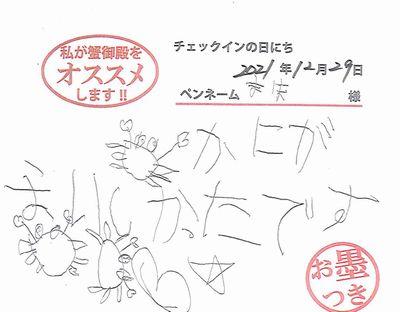 私が蟹御殿を
オススメ
します!!
チェックインの日にち
2021年12月29日
ペンネーム 様
かにが
おいしかたです
☆
お墨
つき